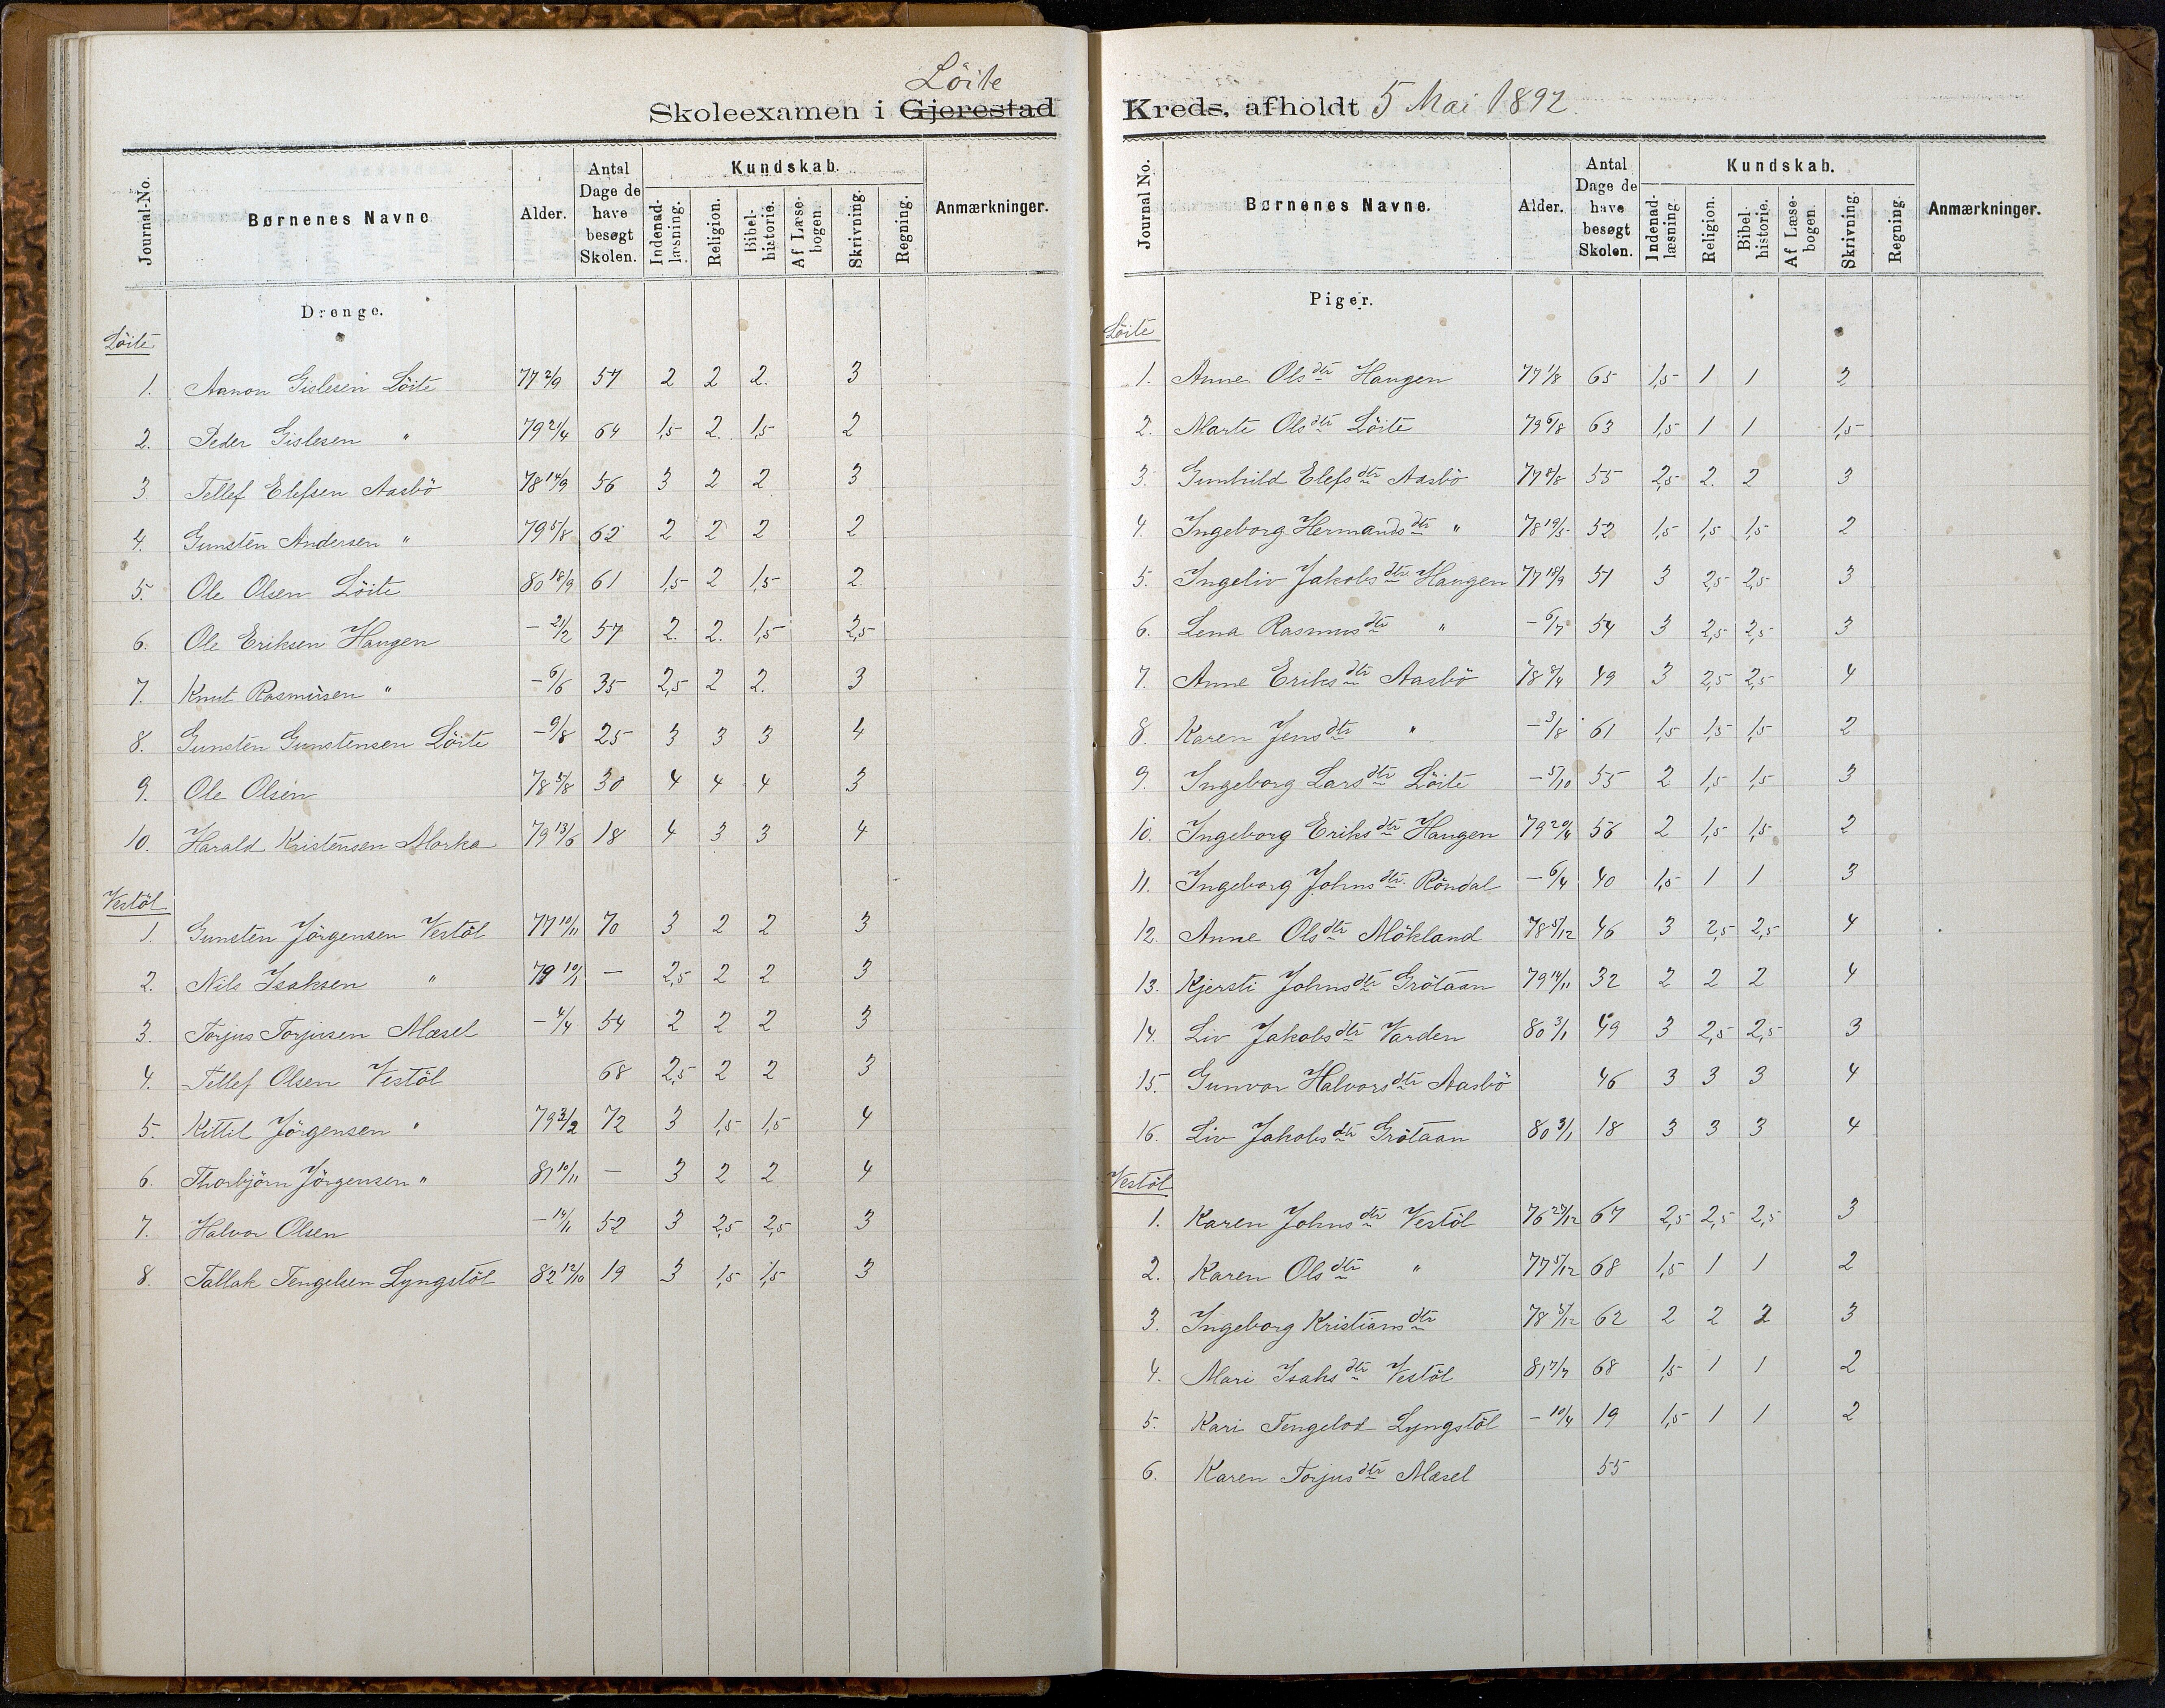 Löite
Skoleexamen i Gjerestad
Journal-No. Børnenes Navne Alder. Antal Dage de have besøgt Skolen. Kundskab. Indenad-læsning. Religion. Bibel-historie. Af Læse-bogen. Skrivning. Regning. Anmærkninger.
Drenge.
Löite
1. Aanon Gislesen Löite 77 2/9 57 2 2 2. 3
2. Peder Gislesen " 79 21/4 64 1,5 2. 1,5 2
3 Tellef Elefsen Aasbö 78 14/9 56 3 2 2 3
4. Gunsten Andersen " 79 5/8 62 2 2 2 2
5. Ole Olsen Löite 80 18/9 61 1,5 2 1,5 2
6. Ole Eriksen Haugen – 21/2 57 2. 2. 1,5 2,5
7. Knut Rasmusen " – 6/6 35 2,5 2 2. 3
8. Gunsten Gunstensen Löite – 9/8 25 3 3 3 4
9. Ole Olsen 78 5/8 30 4 4 4 3
10. Harald Kristensen Morka 79 13/6 18 4 3 3 4
Vestöl
1. Gunsten Jörgensen Vestöl 77 10/11 70 3 2 2 3
2. Nils Isaksen " 79 10/1 — 2,5 2 2 3
3. Torjus Torjusen Mæsel – 4/4 54 2 2 2 3
4. Tellef Olsen Vestöl 68 2,5 2 2 3
5. Kittil Jörgensen " 79 3/2 72 3 1,5 1,5 4
6. Thorbjörn Jörgensen " 81 10/11 — 3 2 2 4
7. Halvor Olsen – 14/11 52 3 2,5 2,5 3
8. Tallak Tengelsen Lyngstöl 82 12/10 19 3 1,5 1,5 3
Kreds, afholdt 5 Mai 1892.
Journal No. Børnenes Navne. Alder. Antal Dage de have besøgt Skolen. Kundskab. Indenad-læsning. Religion. Bibel-historie. Af Læse-bogen. Skrivning. Regning. Anmærkninger.
Piger.
Löite
1. Anne Olsdtr Haugen 77 1/8 65 1,5 1 1 2
2. Marte Olsdtr Löite 79 6/8 63 1,5 1 1 1,5
3. Gunhild Elefsdtr Aasbö 77 8/8 55 2,5 2. 2 3
4. Ingeborg Hermandsdtr " 78 19/5 52 1,5 1,5 1,5 2
5. Ingeliv Jakobsdtr Haugen 77 18/9 51 3 2,5 2,5 3
6. Lena Rasmusdtr " – 6/7 54 3 2,5 2,5 3
7. Anne Eriksdtr Aasbö 78 8/4 49 3 2,5 2,5 4
8. Karen Jensdtr " – 3/8 61 1,5 1,5 1,5 2
9. Ingeborg Larsdtr Löite – 5/10 55 2 1,5 1,5 3
10. Ingeborg Eriksdtr Haugen 79 20/4 56 2 1,5 1,5 2
11. Ingeborg Johnsdtr Röndal – 6/4 40 1,5 1 1 3
12. Anne Olsdtr Mökland 78 5/12 46 3 2,5 2,5 4
13. Kjersti Johnsdtr Grötaan 79 14/11 32 2 2 2 4
14. Liv Jakobsdtr Varden 80 3/1 49 3 2,5 2,5 3
15. Gunvor Halvorsdtr Aasbö 46 3 3 3 4
16. Liv Jakobsdtr Grötaan 80 3/1 18 3 3 3 4
Vestöl
1. Karen Johnsdtr Vestöl 76 27/12 67 2,5 2,5 2,5 3
2. Karen Olsdtr " 77 5/12 68 1,5 1 1 2
3. Ingeborg Kristiansdtr 78 5/12 62 2 2 2 3
4. Mari Isaksdtr Vestöl 81 7/7 68 1,5 1 1 2
5. Kari Tengelsd Lyngstöl – 10/4 19 1,5 1 1 2
6. Karen Torjusdtr Mæsel 55